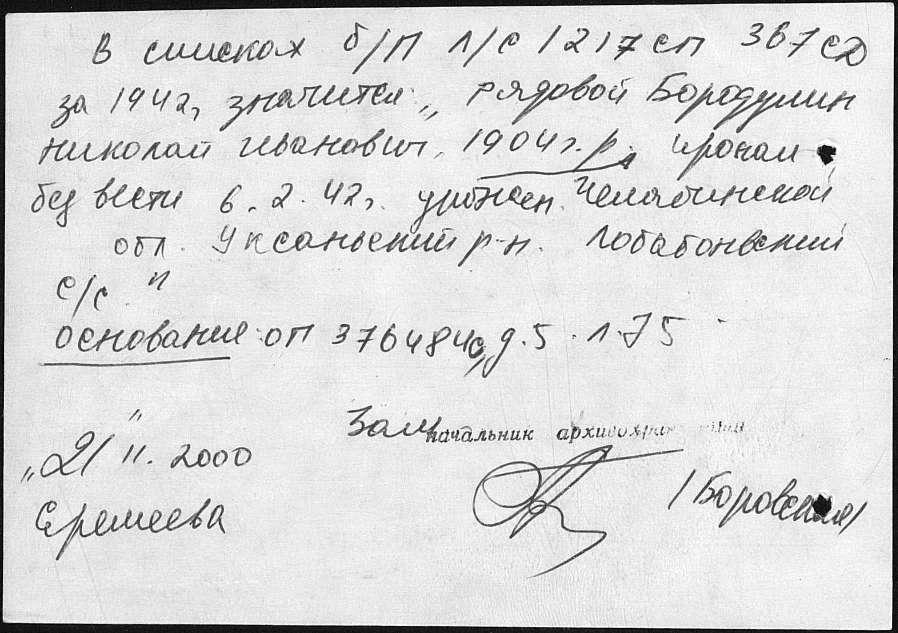 В списках б/п л/с 1217 сп 367 сд
за 1942г. значится: „ рядовой Бородулин
Николай Иванович, 1904 г.р. пропал
без вести 6.2.42г. урожен. Челябинской
обл. Уксаньский р-н.
с/с "
основание: оп 376484с, д.5. л.75
Зам. начальник архивохранилища
„21" 11. 2000
Еремеева
/Боровский/